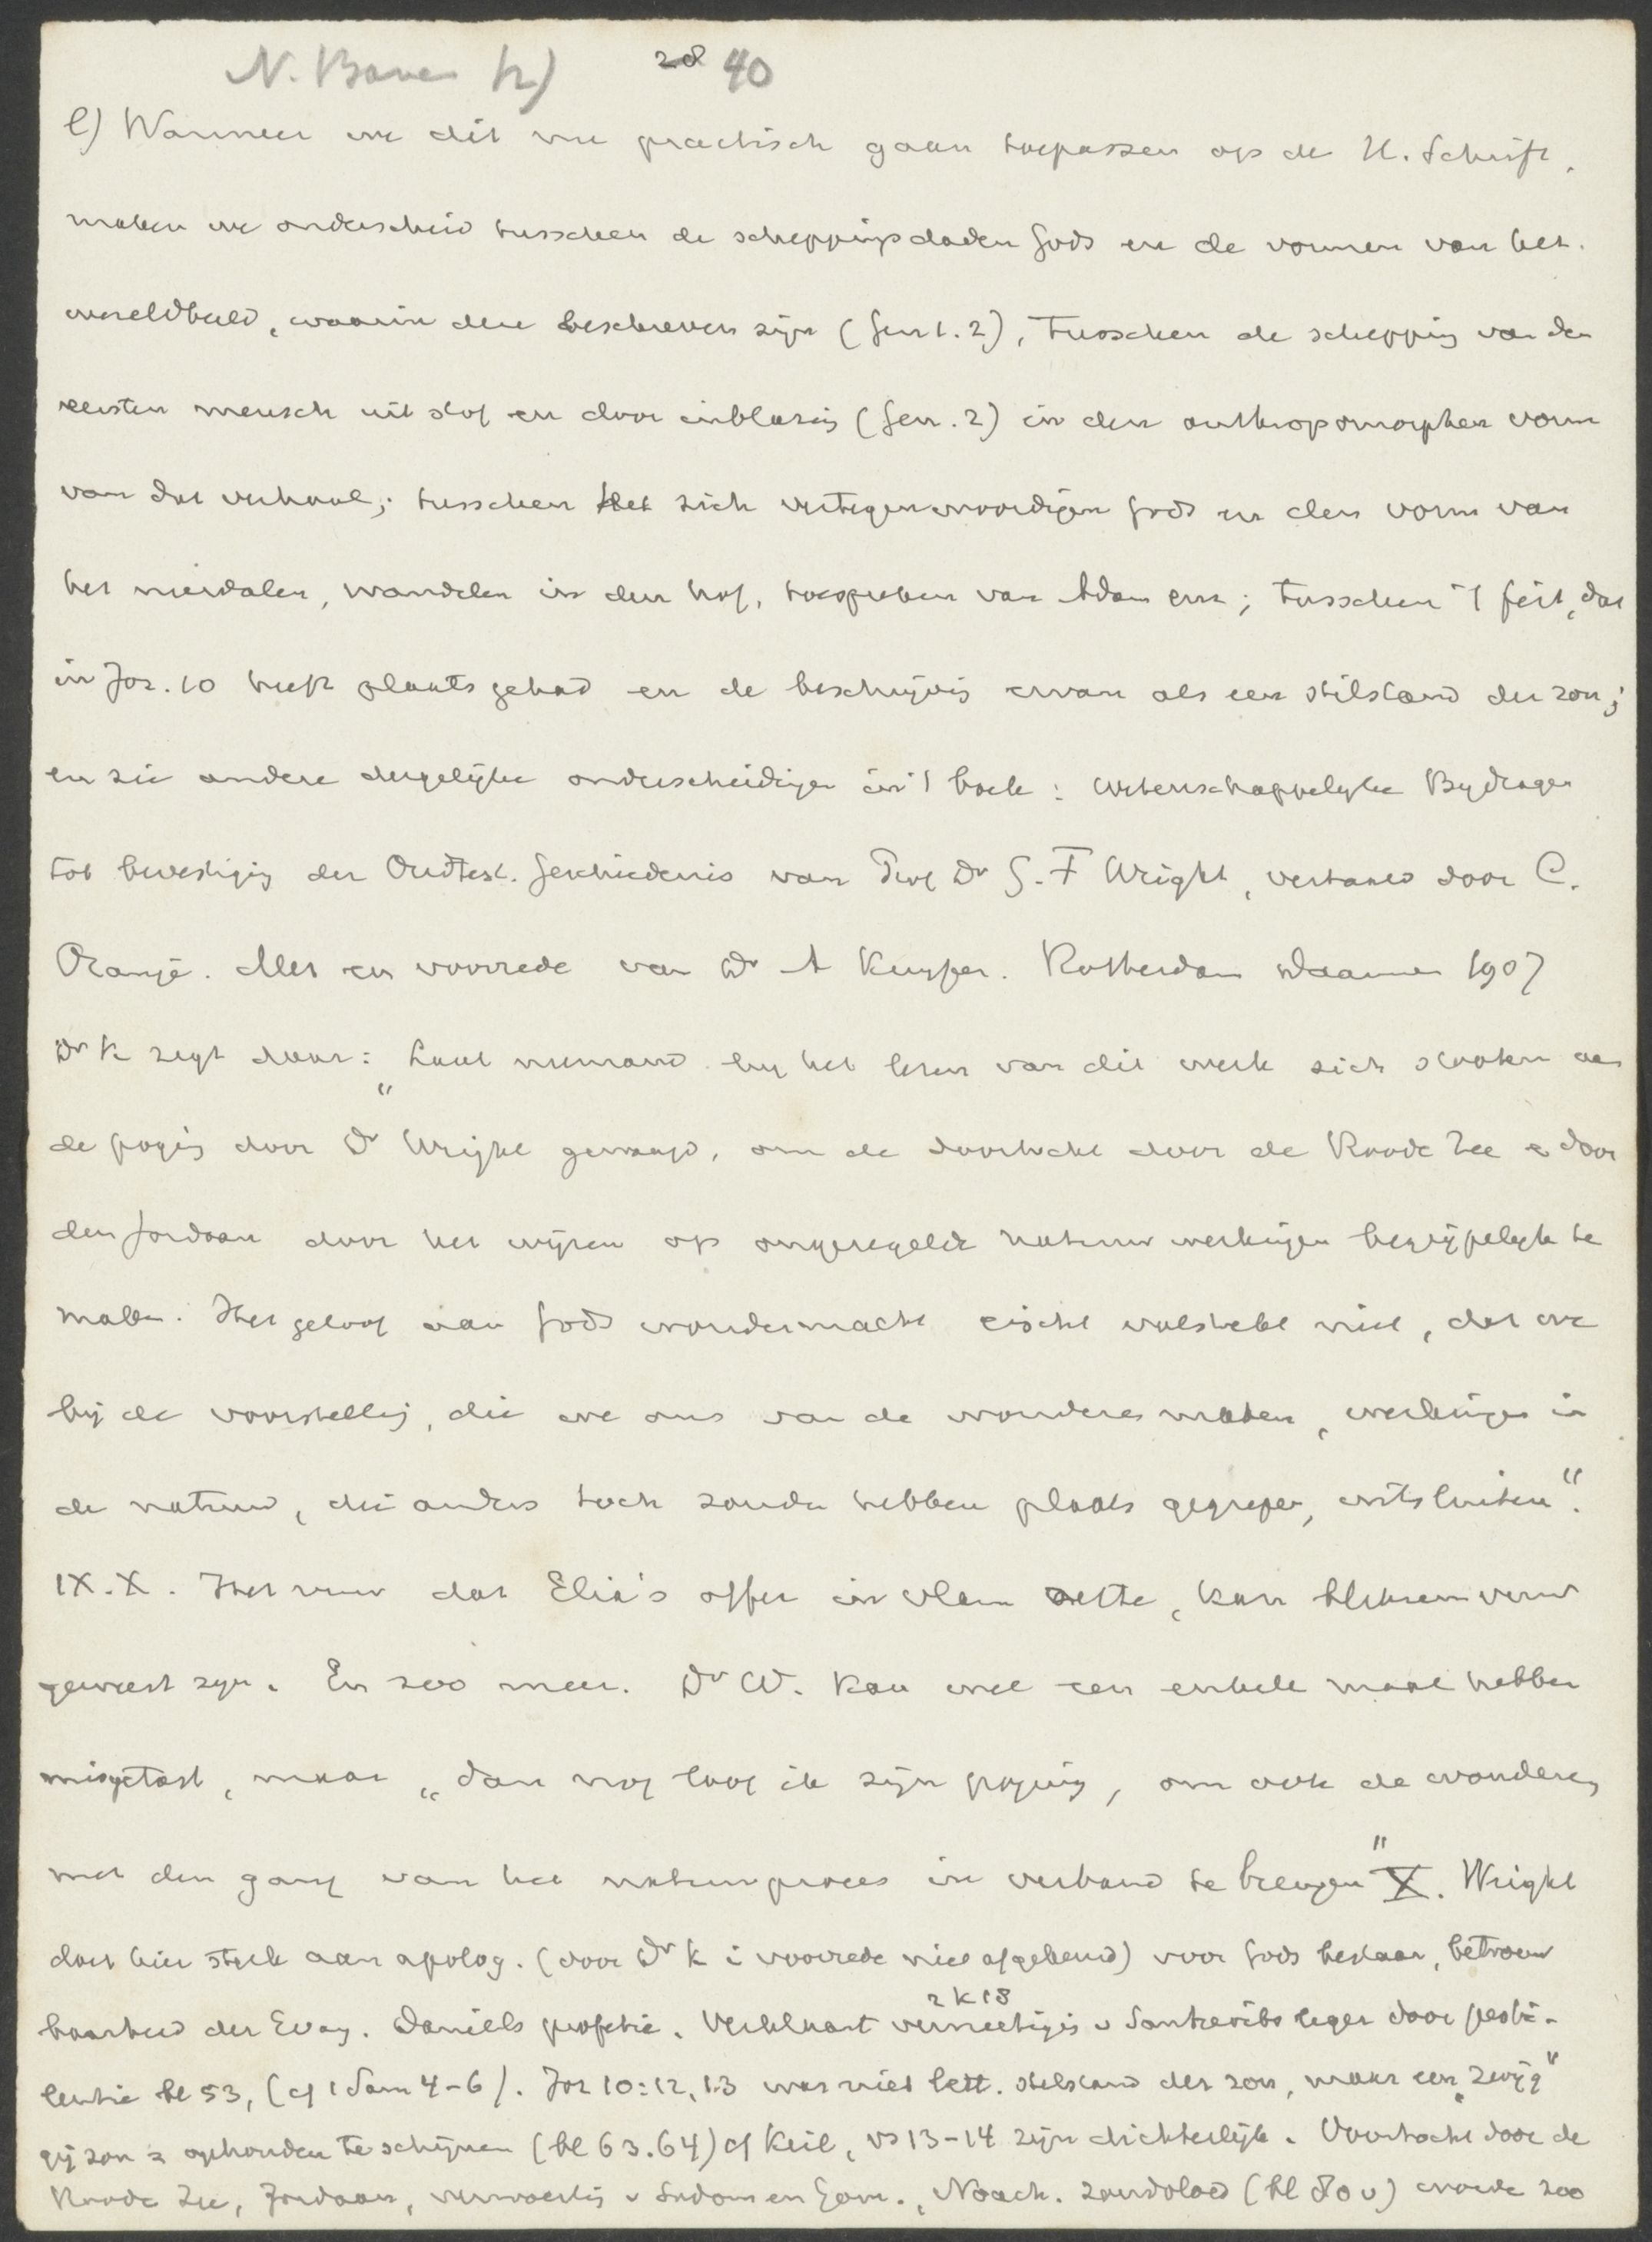 N. Bave 12) 28 40
e) Wanneer we dit nu practisch gaan toepassen op de H. Schrift,
maken we onderscheid tusschen de scheppingsdaden Gods en de vormen van het
wereldbeeld, waarin deze beschreven zijn (Gen 1. 2), tusschen de schepping van den
eersten mensch uit stof en door inblazing (Gen. 2) en den anthropomorphen vorm
van dat verhaal; tusschen het zich vertegenwoordigen Gods en den vorm van
het nierdalen, wandelen in den hof, toespreken van Adam enz; tusschen 't feit, dat
in Joz. 10 heeft plaats gehad en de beschrijving ervan als een stilstand der zon;
en zie andere dergelijke onderscheidingen in 't boek: Wetenschappelijke Bijdragen
tot bevestiging der Oudtest. Geschiedenis van Prof Dr G. F Wright, vertaald door C.
Oranje. Met een voorrede van Dr A Kuyper. Rotterdam Daamen 1907
Dr K zegt daar: „Laat niemand bij het lezen van dit werk zich stooten aan
de poging door Dr Wright gewaagd, om de doortocht door de Roode Zee & door
den Jordaan door het wijzen op ongeregelde natuurwerkingen begrijpelijk te
maken. Het geloof aan Gods wondermacht eischt volstrekt niet, dat we
bij de voorstelling, die we ons van de wonderen maken, werkingen in
de natuur, die anders toch zouden hebben plaats gegrepen, uitsluiten".
IX. X. Het vuur dat Elia's offer in vlam zette, kan bliksemvuur
geweest zijn. En zoo meer. Dr W. kan wel een enkele maal hebben
misgetast, maar „dan nog loof ik zijn poging, om ook de wonderen
met den gang van het natuurproces in verband te brengen" X. Wright
doet hier sterk aan apolog. (door Dr K i voorrede niet afgekeurd) voor Gods bestaan, betrouw
baarheid der Evang. Daniëls profetie. Verklaart vernietiging v Sanheribs leger 2 K 18 door pesti-
lentie bl 53, (cf 1 Sam 4-6). Joz 10:12, 13 was niet lett. stilstand der zon, maar een „zwijg"
gij zon = ophouden te schijnen (bl 63.64) cf Keil, vs 13-14 zijn dichterlijk. Doortocht door de
Roode Zee, Jordaan, verwoesting v Sodom en Gom., Noach. zondvloed (bl 80 v) worden zoo